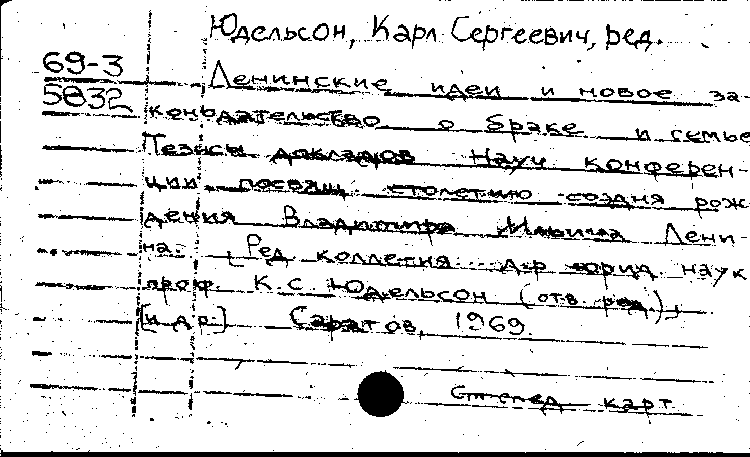 Юдельсон, Карл Сергеевич, ред.
69-3
5832
Ленинские идеи и новое за-
конодательство о браке и семье
Тезисы докладов Науч конферен-
ции посвящ. столетию со дня рож-
дения Владимира Ильича Лени-
на. [Ред коллегия: д-р юрид. наук
проф. К.С. Юдельсон (отв. ред.),
[и др.] Саратов, 1969.
См след карт.